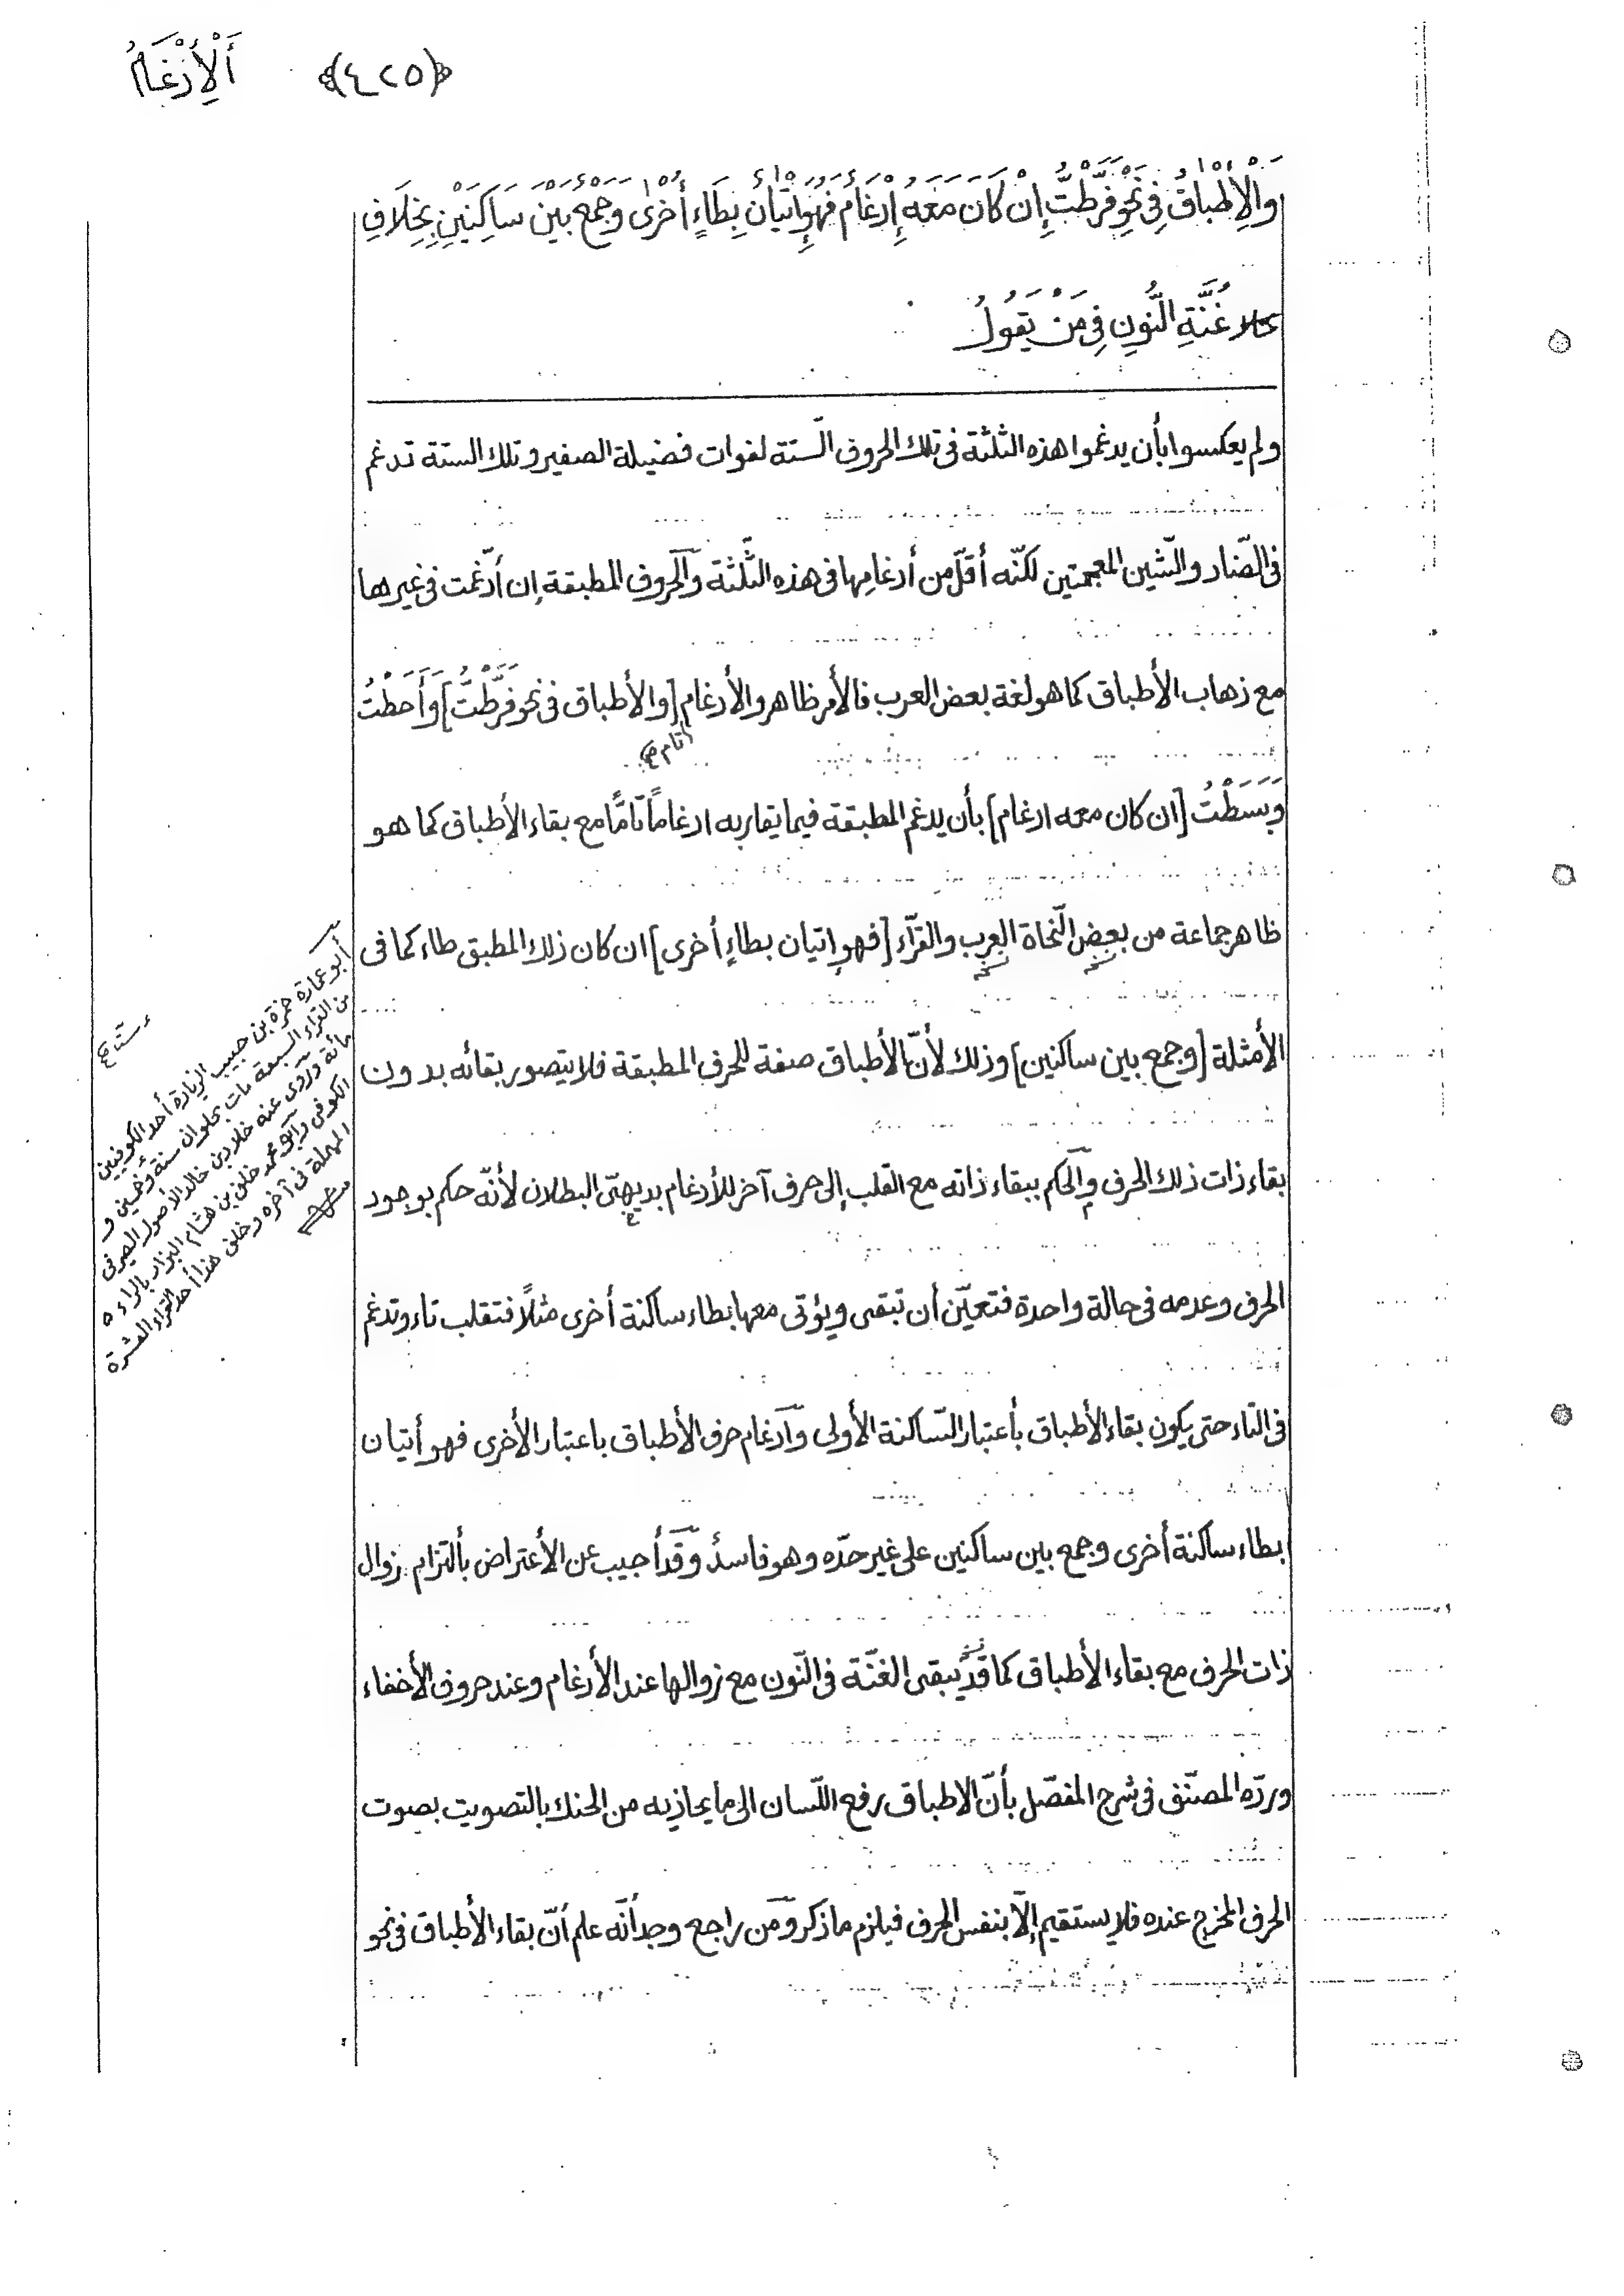 ﴿٤٢٥﴾ أَلْأِدْغَامُ
وَالْأِطْبَاقُ فِى نَحْوِ فَرَّطْتُّ إِنْ كَانَ مَعَهُ إِدْغَامٌ فَهُوَ إِتْيَانٌ بِطَاءٍ أُخْرٰى وَجَمْعٌ بَيْنَ سَاكِنَيْنِ بِخِلَافِ
غُنَّةِ النُّونِ فِى مَنْ يَقُولُ
ولم يعكسوا بأن يدغموا هذه الثلثة فى تلك الحروف الستّة لفوات فضيلة الصفير وتلك الستة تدغم
فى الضّاد والشّين المعجمتين لكنّه أقلّ من أدغامِها فى هذه الثّلثة والحروف المطبقة إن أدّغمت فى غيرها
مع ذهاب الأطباق كما هو لغة بعض العرب فالأمر ظاهر والأدغام [والأطباق فى نحو فَرَّطْتُّ] وَأَحَطْتُ
التام صح
وَبَسَطْتُ [ان كان معه ادغام] بأن يدغم المطبقة فيما يقاربه ادغاماً تامًّا مع بقاء الأطباق كما هو
ظاهر جماعة من بعض النّحاة العرب والقرّاء [فهو إتيان بطاءٍ أخرى] ان كان ذلك المطبق طاء كما فى
الأمثلة [وجمع بين ساكنين] وذلك لأنّ الأطباق صفة للحرف المطبقة فلا يتصور بقائه بدون
بقاء ذات ذلك الحرف والحكم ببقاء ذاته مع القلب إلى حرف آخر للأدغام بديهىّ البطلان لأنّه حكم بوجود
الحرف وعدمه فى حالة واحدة فتعيّن أن تبقى ويؤتى معها بطاء ساكنة أخرى مثلًا فتقلب تاء وتدغم
فى التاء حتى يكون بقاء الأطباق بأعتبار السّاكنة الأولى وأدغام حرف الأطباق باعتبار الأخرى فهو أتيان
بطاء ساكنة أخرى وجمع بين ساكنين على غير حدّه وهو فاسدٌ وقد أجيب عن الأعتراض بألتزام زوال
ذات الحرف مع بقاء الأطباق كما قد يبقى الغنّة فى النّون مع زوالها عند الأدغام وعند حروف الأخفاء
وردّه المصنّف فى شرح المفصّل بأنّ الاطباق رفع اللّسان الى ما يحاذيه من الحنك بالتصويت بصوت
الحرف المخرج عنده فلا يستقيم إلّا بنفس الحرف فيلزم ما ذكر ومن راجع وجدأنه علم أنّ بقاء الأطباق فى نحو
أبو عمارة حمزة بن حبيب الزيادة أحد الكوفيين
من القراء السبعة مات بحلوان سنة وخمسين و
مائة وروى عنه خلاد بن خالد الأصول الصيرفى
الكوفى وأبو محمد خلف بن هشام البزار بالراء
المهملة فى آخره وخلف هذا أحد القراء العشرة